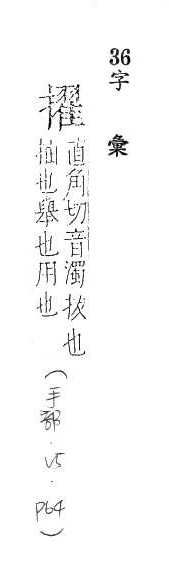 36字彙
擢
直角切音濁拔也
抽也舉也用也
(手部.V5.P64)